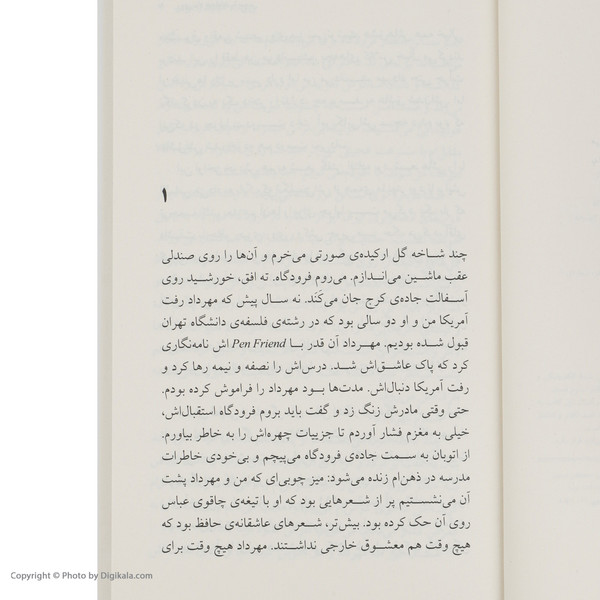 ۱
چند شاخه گل ارکیده‌ی صورتی می‌خرم و آن‌ها را روی صندلی
عقب ماشین می‌اندازم. می‌روم فرودگاه. ته افق، خورشید روی
آسفالت جاده‌ی کرج جان می‌کَند. نه سال پیش که مهرداد رفت
آمریکا من و او دو سالی بود که در رشته‌ی فلسفه‌ی دانشگاه تهران
قبول شده بودیم. مهرداد آن قدر با Pen Friend اش نامه‌نگاری
کرد که پاک عاشق‌اش شد. درس‌اش را نصفه و نیمه رها کرد و
رفت آمریکا دنبال‌اش. مدت‌ها بود مهرداد را فراموش کرده بودم.
حتی وقتی مادرش زنگ زد و گفت باید بروم فرودگاه استقبال‌اش،
خیلی به مغزم فشار آوردم تا جزییات چهره‌اش را به خاطر بیاورم.
از اتوبان به سمت جاده‌ی فرودگاه می‌پیچم و بی‌خودی خاطرات
مدرسه در ذهن‌ام زنده می‌شود: میز چوبی‌ای که من و مهرداد پشت
آن می‌نشستیم پر از شعرهایی بود که او با تیغه‌ی چاقوی عباس
روی آن حک کرده بود. بیش‌تر، شعرهای عاشقانه‌ی حافظ بود که
هیچ وقت هم معشوق خارجی نداشتند. مهرداد هیچ وقت برای
Copyright © Photo by Digikala.com